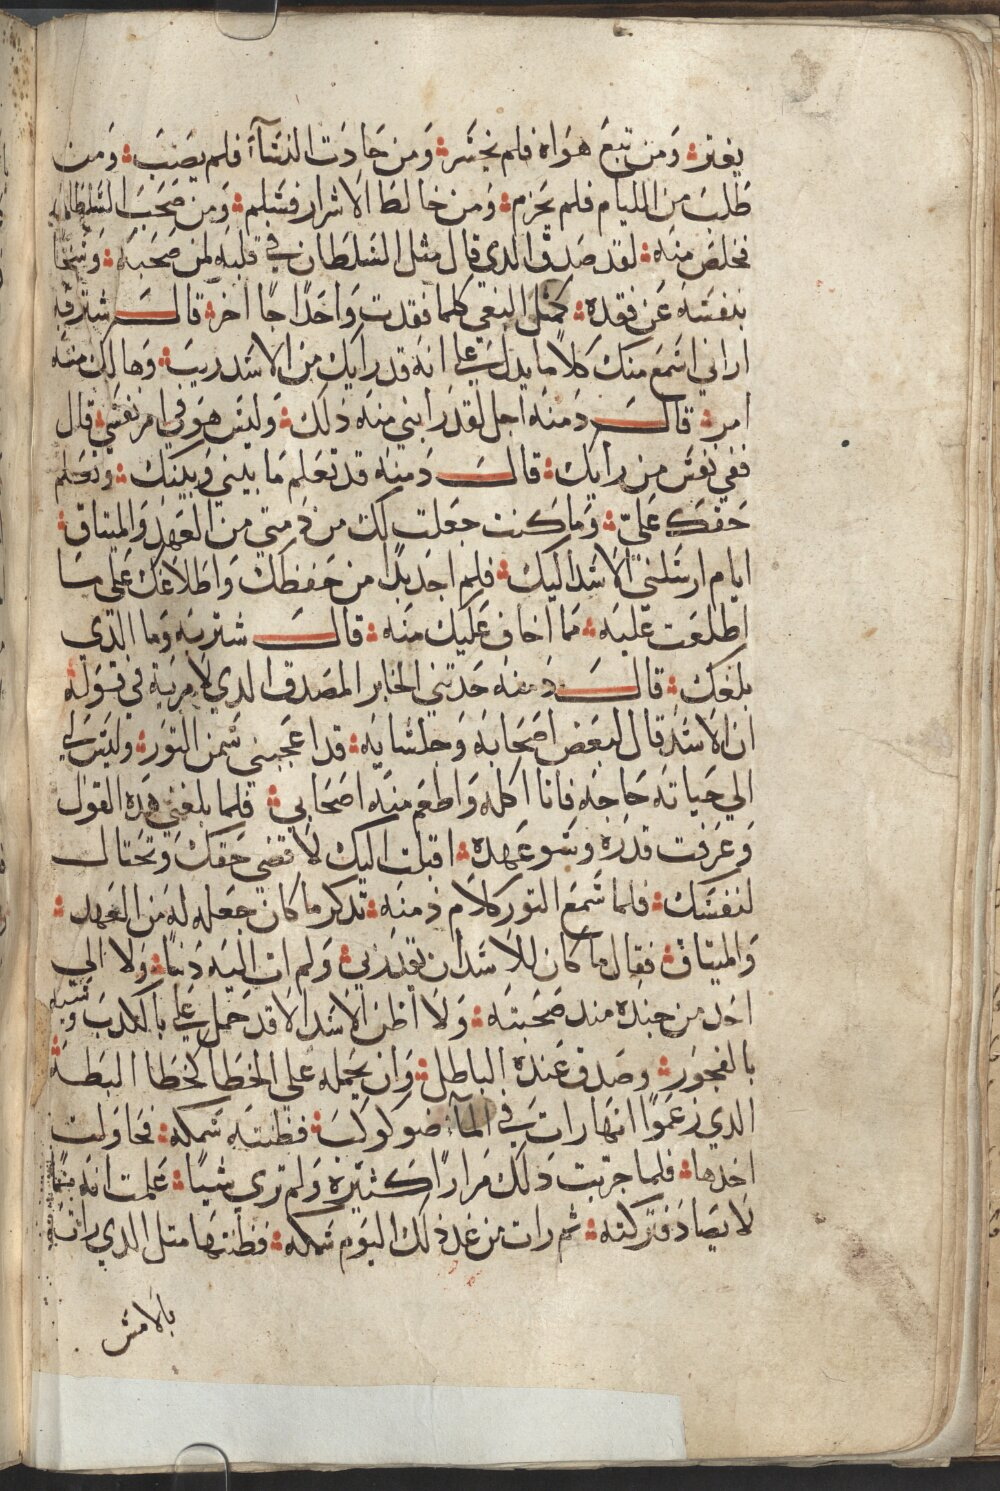 يغتر ومن تبع هواه فلم يخسر ومن حادت النسآء فلم يصب ومن
طلب من الليام فلم يحرم ومن خالط الاشرار فسلم ومن صحب السلطان
فخلص منه لقد صدق الدي قال مثل السلطان في قلبه لمن صحبه وسخا
بنفسه عن فقده كمثل البغي كلما فقدت واحدا جا اخر قال شتربه
اراني اسمع منك كلاما يدل علي انه قد رايك من الاسد ريب وهالك منه
امر قال دمنه اجل لقد رابني منه ذلك وليس هو في امر نفسي قال
ففي نفس من رايك قال دمنه قد تعلم ما بيني وبينك وتعلم
حقك علي وما كنت جعلت لك من ذمتي من العهد والميتاق
ايام ارسلني الاسد اليك فلم اجد بدا من حفظك واطلاعك على ما
اطلعت عليه مما اخاف عليك منه قال شتربه وما الذي
بلغك قال دمنه حدتني الخابر المصدق الدي لا مرية في قوله
ان الاسد قال لبعض اصحابه وجلسايه قد اعجبني سمن التور وليس لي
الي حياته حاجه فانا اكله واطعم منه اصحابي فلما بلغني هده القول
وعرفت قدره وسو عهده اقبلت اليك لاقضي حقك وتحتال
لنفسك فلما سمع التور كلام دمنه تدكر ما كان جعله له من العهد
والميتاق فقال ما كان للاسد ان يغدر بي ولم ات اليه دنبا ولا الي
احد من جنده مند صحبته ولا اظن الاسد الا قد حمل علي بالكدب وشبه
بالفجور وصدق عنده الباطل وان يحمله على الخطا كخطا البطة
الدي زعموا انها رات في المآء ضو كوكب فظنته سمكه فحاولت
اخدها فلما جربت دلك مرارا كثيرة ولم تري شيا علمت انه مما
لا يصاد فتركته ثم رات من غد ذلك اليوم سمكه فظنتها متل الدي رات
بالامس